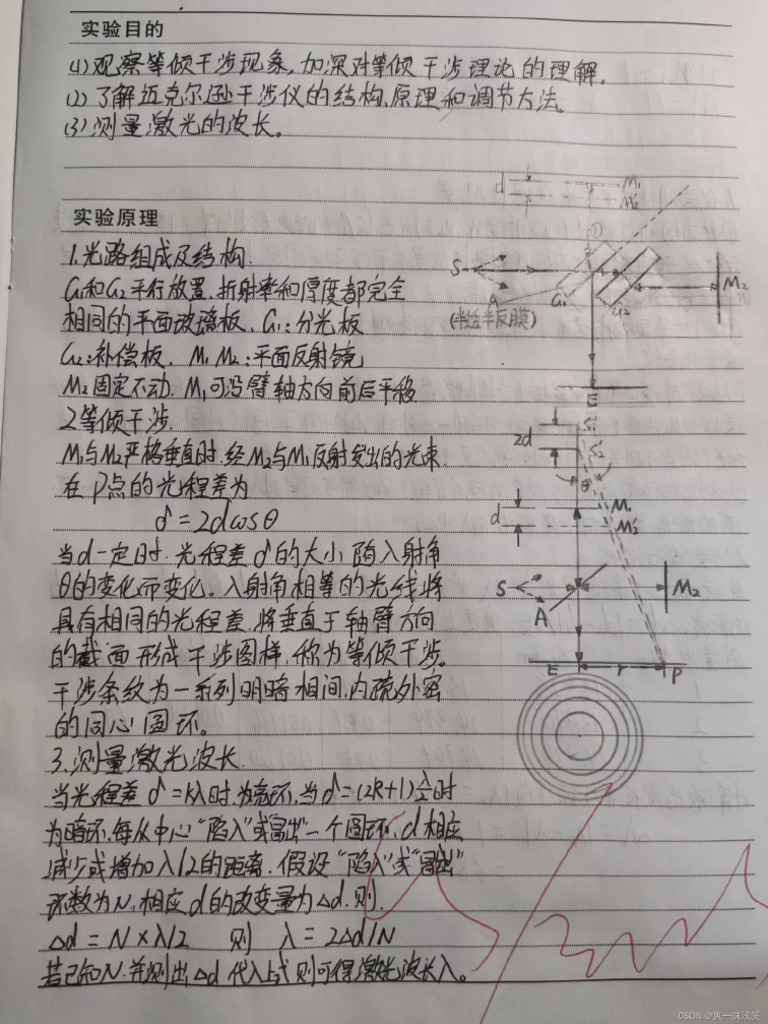 实验目的
(1)观察等倾干涉现象,加深对等倾干涉理论的理解.
(2)了解迈克尔逊干涉仪的结构、原理和调节方法.
(3)测量激光的波长。
实验原理
1.光路组成及结构.
G1和G2平行放置.折射率和厚度都完全
相同的平面玻璃板. G1:分光板
G2:补偿板. M1 M2:平面反射镜
M2固定不动. M1可沿臂轴方向前后平移
2等倾干涉.
M1与M2严格垂直时.经M2与M1反射发出的光束
在P点的光程差为
δ=2dcosθ
当d一定时.光程差δ的大小随入射角
θ的变化而变化。入射角相等的光线将
具有相同的光程差.将垂直于轴臂方向
的截面形成干涉图样,称为等倾干涉。
干涉条纹为一系列明暗相间,内疏外密
的同心圆环。
3.测量激光波长
当光程差δ=Kλ时.为亮环.当δ=(2K+1)λ/2时
为暗环.每从中心"陷入"或"冒出"一个圆环.d相应
减少或增加λ/2的距离.假设"陷入"或"冒出"
环数为N,相应d的改变量为Δd.则.
Δd = N×λ/2 则 λ = 2Δd/N
若已知N.并测出Δd代入上式则可得激光波长λ。
d M1
M2'
①
S
A G1 G2 M2
(半透半反膜)
E
S1'
2d S2'
θ
M1
d M2'
S M2
A
E r P
CSDN @执一抹浅笑